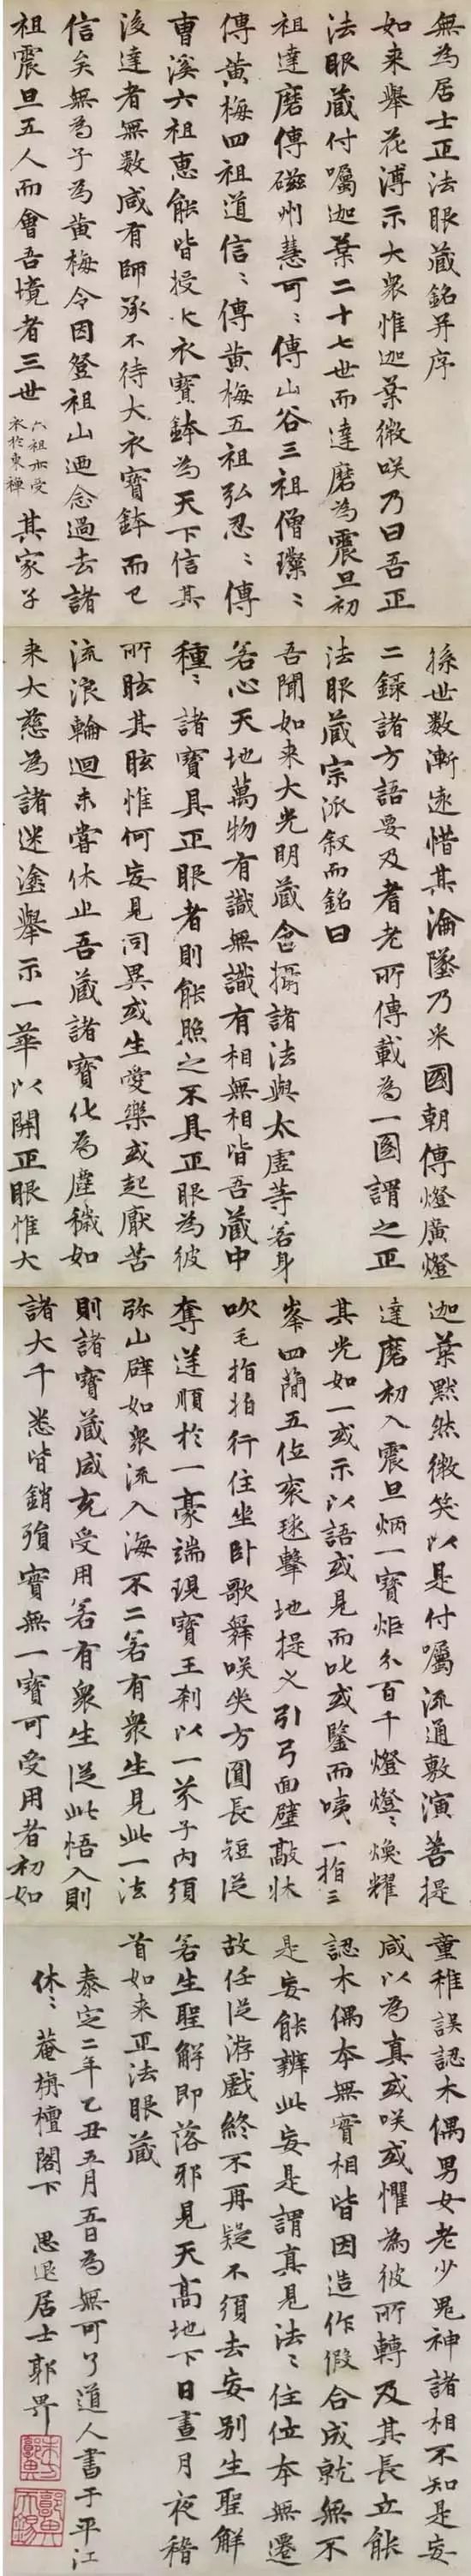 無為居士正法眼藏銘并序
如来舉花溥示大衆惟迦葉微咲乃曰吾正
法眼藏付囑迦葉二十七世而達磨為震旦初
祖達磨傳磁州慧可〻傳山谷三祖僧璨〻
傳黃梅四祖道信〻傳黃梅五祖弘忍〻傳
曹溪六祖惠能皆授以大衣寶鉢為天下信其
後達者無數咸有師承不待大衣寶鉢而已
信矣無為子為黃梅令因登祖山迺念過去諸
祖震旦五人而會吾境者三世六祖亦受衣於東禪其家子
孫世数漸遠惜其淪墜乃采國朝傳燈廣燈
二錄諸方語要及耆老所傳載為一圖謂之正
法眼藏宗派敘而銘曰
吾聞如来大光明藏含攝諸法與太虛等若身
若心天地萬物有識無識有相無相皆吾藏中
種〻諸寶具正眼者則能照之不具正眼為彼
所眩其眩惟何妄見同異或生愛樂或起厭苦
流浪輪迴未嘗休止吾藏諸寶化為塵穢如
来大慈為諸迷塗舉示一華以開正眼惟大
迦葉默然微笑以是付囑流通敷演菩提
達磨初入震旦炳一寶炬分百千燈燈〻煥耀
其光如一或示以語或見而叱或鑒而咦一指三
峯四蕳五位衮毬擊地提义引弓面壁敲牀
吹毛指拍行住坐卧歌舞咲哭方圓長短從
奪逆順於一豪端現寶王剎以一芥子內須
弥山辟如衆流入海不二若有衆生見此一法
則諸寶藏咸克受用若有衆生從此悟入則
諸大千悉皆銷殞實無一寶可受用者初如
童稚誤認木偶男女老少鬼神諸相不知是妄
咸以為真或咲或懼為彼所轉及其長立能
認木偶本無實相皆因造作假合成就無不
是妄能辨此妄是謂真見法〻住位本無遷
故任從游戲終不再疑不須去妄别生聖解
若生聖解即落邪見天高地下日晝月夜稽
首如来正法眼藏
泰定二年乙丑五月五日為無可了道人書于平江
休〻菴栴檀閣下 思退居士郭畀